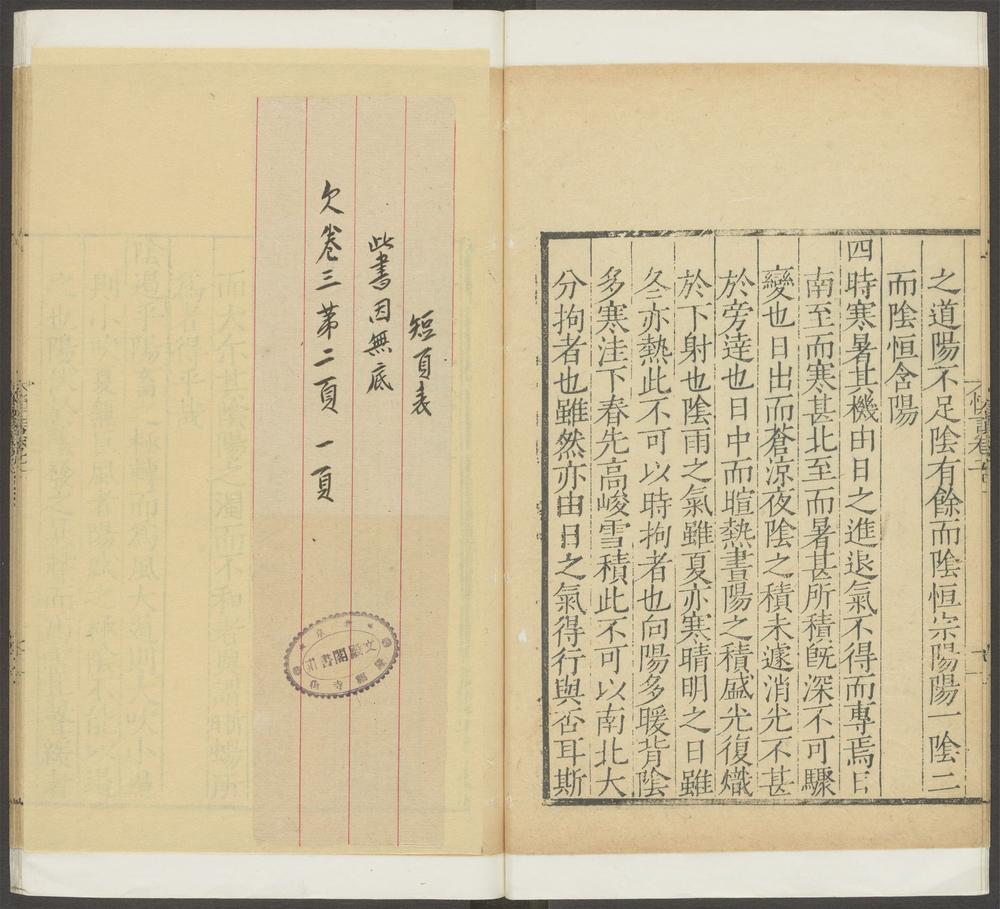 之道陽不足陰有餘而陰恒宗陽陽一陰二
而陰恒含陽
四時寒暑其機由日之進退氣不得而專焉日
南至而寒甚北至而暑甚所積旣深不可驟
變也日出而蒼涼夜陰之積未遽消光不甚
於旁達也日中而暄熱晝陽之積盛光復熾
於下射也陰雨之氣雖夏亦寒晴明之日雖
冬亦熱此不可以時拘者也向陽多暖背陰
多寒洼下春先高峻雪積此不可以南北大
分拘者也雖然亦由日之氣得行與否耳斯
短頁表
此書因無底
欠卷三第二頁 一頁
文殿閣書莊